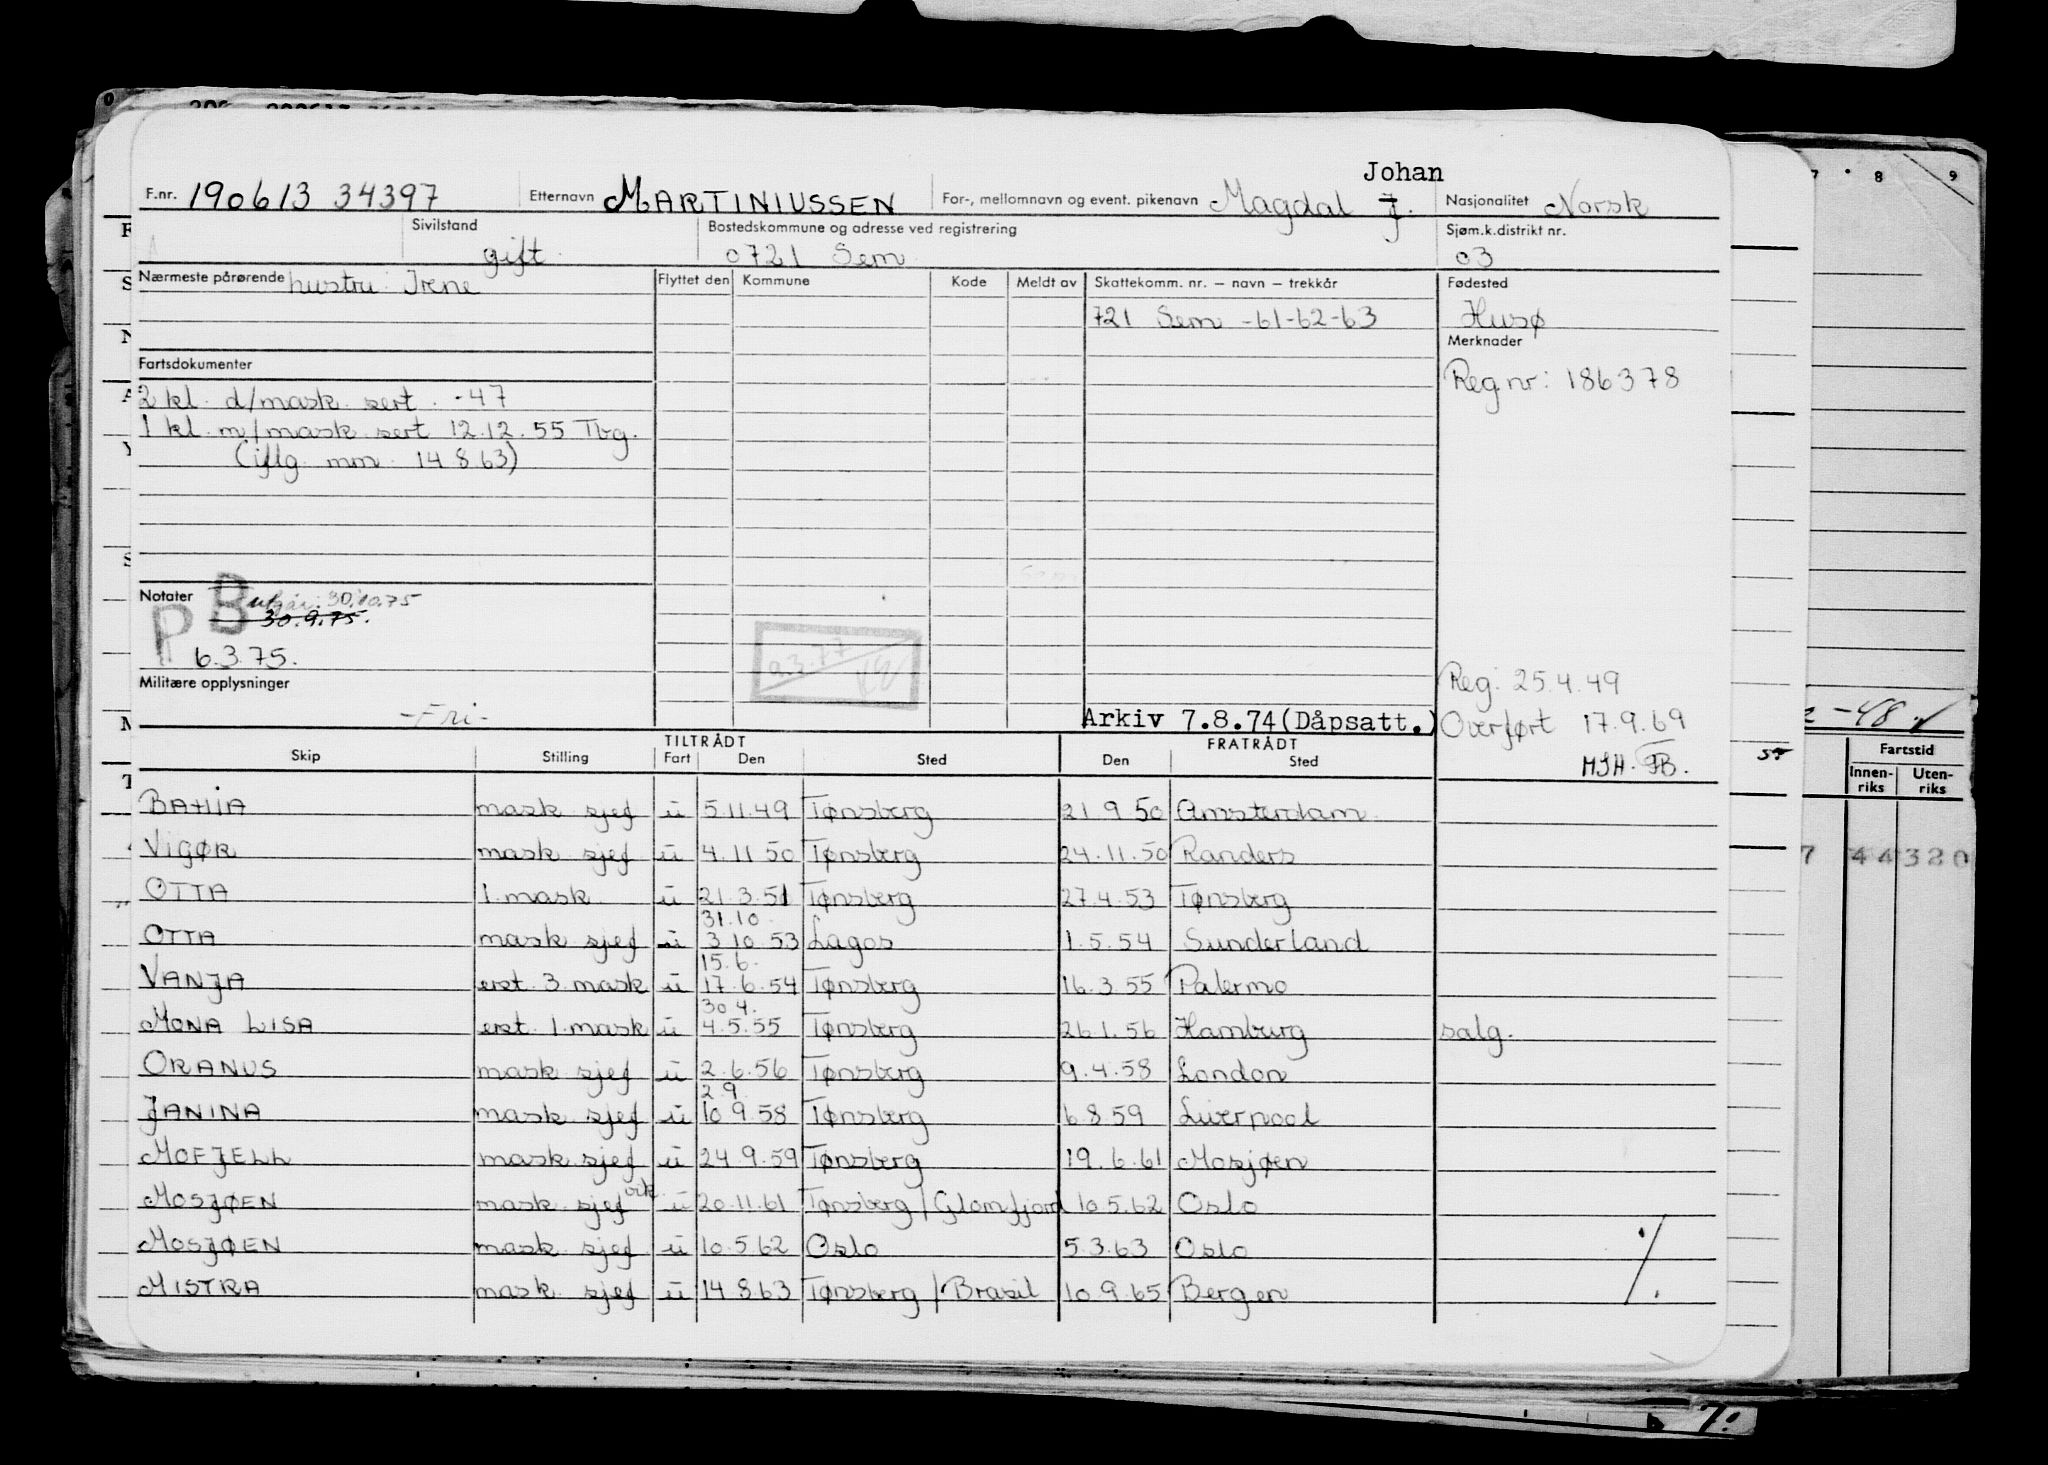 Johan
F.nr. 190613 34397 Etternavn MARTINIUSSEN For-, mellomnavn og event. pikenavn Magdal J. Nasjonalitet Norsk
Sivilstand gift Bostedskommune og adresse ved registrering 0721 Sem Sjøm.k.distrikt nr. 03
Nærmeste pårørende hustru Irene Flyttet den Kommune Kode Meldt av Skattekomm. nr. – navn – trekkår Fødested
721 Sem -61-62-63 Husø
Merknader
Fartsdokumenter
Reg nr: 186378
2 kl. d/mask. sert. -47
1 kl. m/mask sert 12.12.55 Tbg.
(iflg. mm. 14.8.63)
Notater
P B utgår: 30.10.75
30.9.75.
6.3.75.
Militære opplysninger
-Fri-
Reg. 25.4.49
Arkiv 7.8.74(Dåpsatt.) Overført 17.9.69
TILTRÅDT FRATRÅDT
Skip Stilling Fart Den Sted Den Sted
BAHIA mask sjef u 5.11.49 Tønsberg 21.9.50 Amsterdam
VIGØR mask. sjef u 4.11.50 Tønsberg 24.11.50 Randers
OTTA 1. mask. u 21.3.51 Tønsberg 27.4.53 Tønsberg
31.10.
OTTA mask sjef u 3.10.53 Lagos 1.5.54 Sunderland
15.6.
VANJA erst. 3. mask u 17.6.54 Tønsberg 16.3.55 Palermo
30.4.
MONA LISA erst. 1. mask u 4.5.55 Tønsberg 26.1.56 Hamburg salg.
ORANUS mask sjef u 2.6.56 Tønsberg 9.4.58 London
2.9.
JANINA mask sjef u 10.9.58 Tønsberg 6.8.59 Liverpool
MOFJELL mask. sjef u 24.9.59 Tønsberg 19.6.61 Mosjøen
MOSJØEN mask. sjef u 20.11.61 Tønsberg/Glomfjord 10.5.62 Oslo
MOSJØEN mask. sjef u 10.5.62 Oslo 5.3.63 Oslo
MISTRA mask. sjef u 14.8.63 Tønsberg/Brasil 10.9.65 Bergen
7 8 9
-48
Fartstid
Innen-riks Uten-riks
7 44320
7.